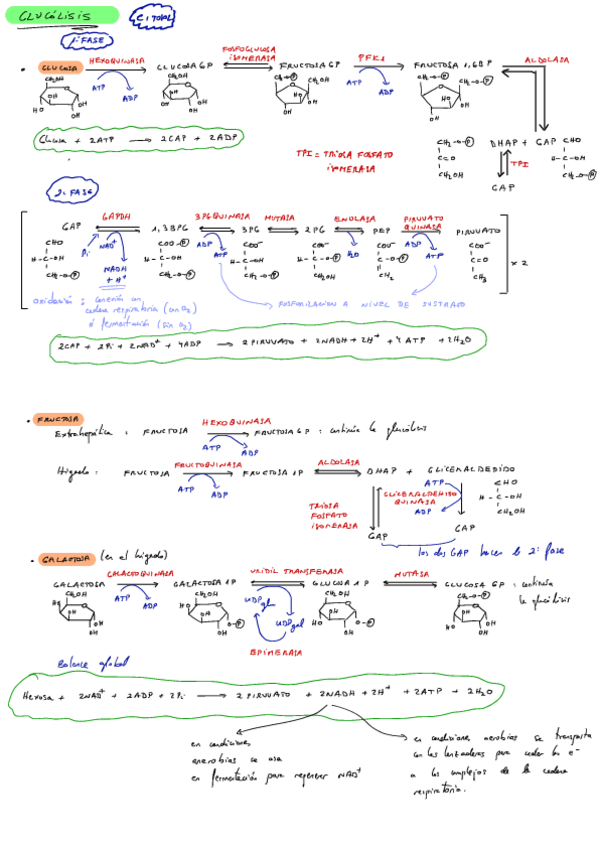 GLUCÓLISIS
CITOSOL
1ª FASE
GLUCOSA
HEXOQUINASA
ATP
ADP
GLUCOSA 6P
FOSFOGLUCOSA
ISOMERASA
FRUCTOSA 6P
PFK1
ATP
ADP
FRUCTOSA 1,6BP
ALDOLASA
DHAP + GAP
TPI
GAP
Glucosa + 2ATP → 2GAP + 2ADP
TPI = TRIOSA FOSFATO
ISOMERASA
2ª FASE
GAP
GAPDH
Pi
NAD⁺
NADH
+ H⁺
1,3BPG
3PGQUINASA
ADP
ATP
3PG
MUTASA
2PG
ENOLASA
H₂O
PEP
PIRUVATO
QUINASA
ADP
ATP
PIRUVATO
x 2
oxidación : conexión con
cadena respiratoria (con O₂)
ó fermentación (sin O₂)
FOSFORILACIÓN A NIVEL DE SUSTRATO
2GAP + 2Pi + 2NAD⁺ + 4ADP → 2 PIRUVATO + 2NADH + 2H⁺ + 4ATP + 2H₂O
FRUCTOSA
Extrahepática : FRUCTOSA
HEXOQUINASA
ATP
ADP
FRUCTOSA 6P : continúa la glucólisis
Hígado : FRUCTOSA
FRUCTOQUINASA
ATP
ADP
FRUCTOSA 1P
ALDOLASA
DHAP + GLICERALDEHIDO
TRIOSA
FOSFATO
ISOMERASA
ATP
ADP
GLICERALDEHIDO
QUINASA
GAP
GAP
los dos GAP hacen la 2ª fase
GALACTOSA (en el hígado)
GALACTOSA
GALACTOQUINASA
ATP
ADP
GALACTOSA 1P
URIDIL TRANSFERASA
UDP glu
UDP gal
EPIMERASA
GLUCOSA 1P
MUTASA
GLUCOSA 6P : continúa
la glucólisis
Balance global
Hexosa + 2NAD⁺ + 2ADP + 2Pi → 2 PIRUVATO + 2NADH + 2H⁺ + 2ATP + 2H₂O
en condiciones
anerobias se usa
en fermentación para regenerar NAD⁺
en condiciones aerobias se transporta
con las lanzaderas para ceder los e⁻
a los complejos de la cadena
respiratoria.